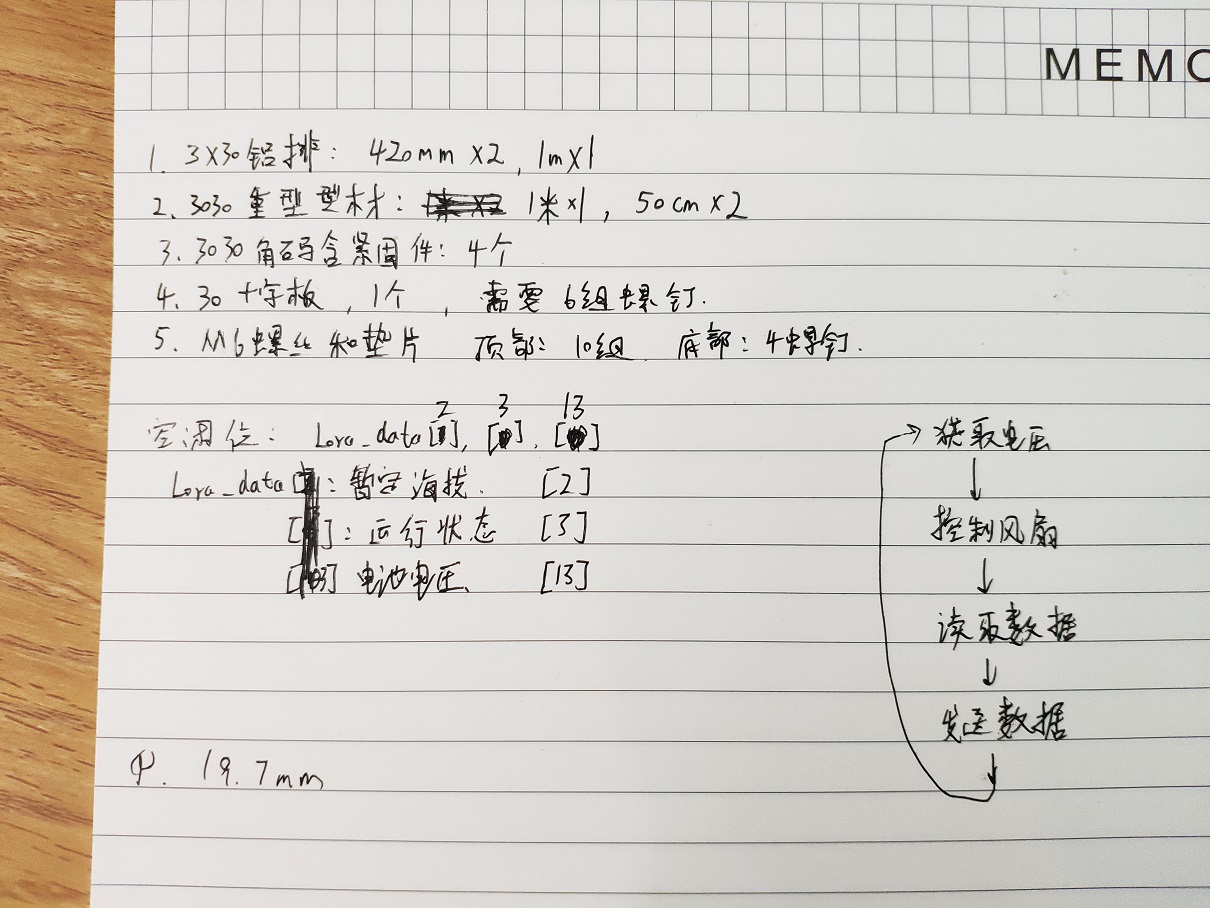 MEMO
1. 3X30铝排: 420mm X2, 1mX1
2. 3030重型型材: 1米×1, 50cm×2
3. 3030角码含紧固件: 4个
4. 30十字板, 1个, 需要6组螺钉.
5. M6螺丝和垫片 顶部: 10组 底部: 4螺钉.
2 3 13
空闲位: Lora_data[ ], [ ], [ ]
Lora_data[ ]: 暂定海拔. [2]
[ ]: 运行状态 [3]
[ ] 电池电压. [13]
获取电压
↓
控制风扇
↓
读取数据
↓
发送数据
↓
19.7mm